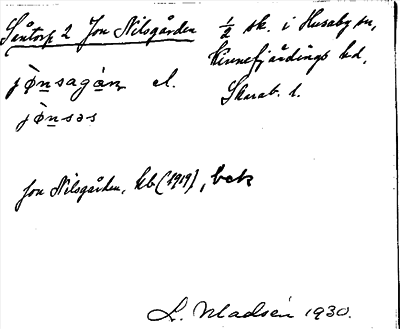 Såntorp 2 Jon Nilsgården ½ sk. i Husaby sn,
Kinnefjärdings hd,
Skarab. l.
jònsagán el.
jònsəs
Jon Nilsgården, kb (1919), bek
L. Madsén 1930.